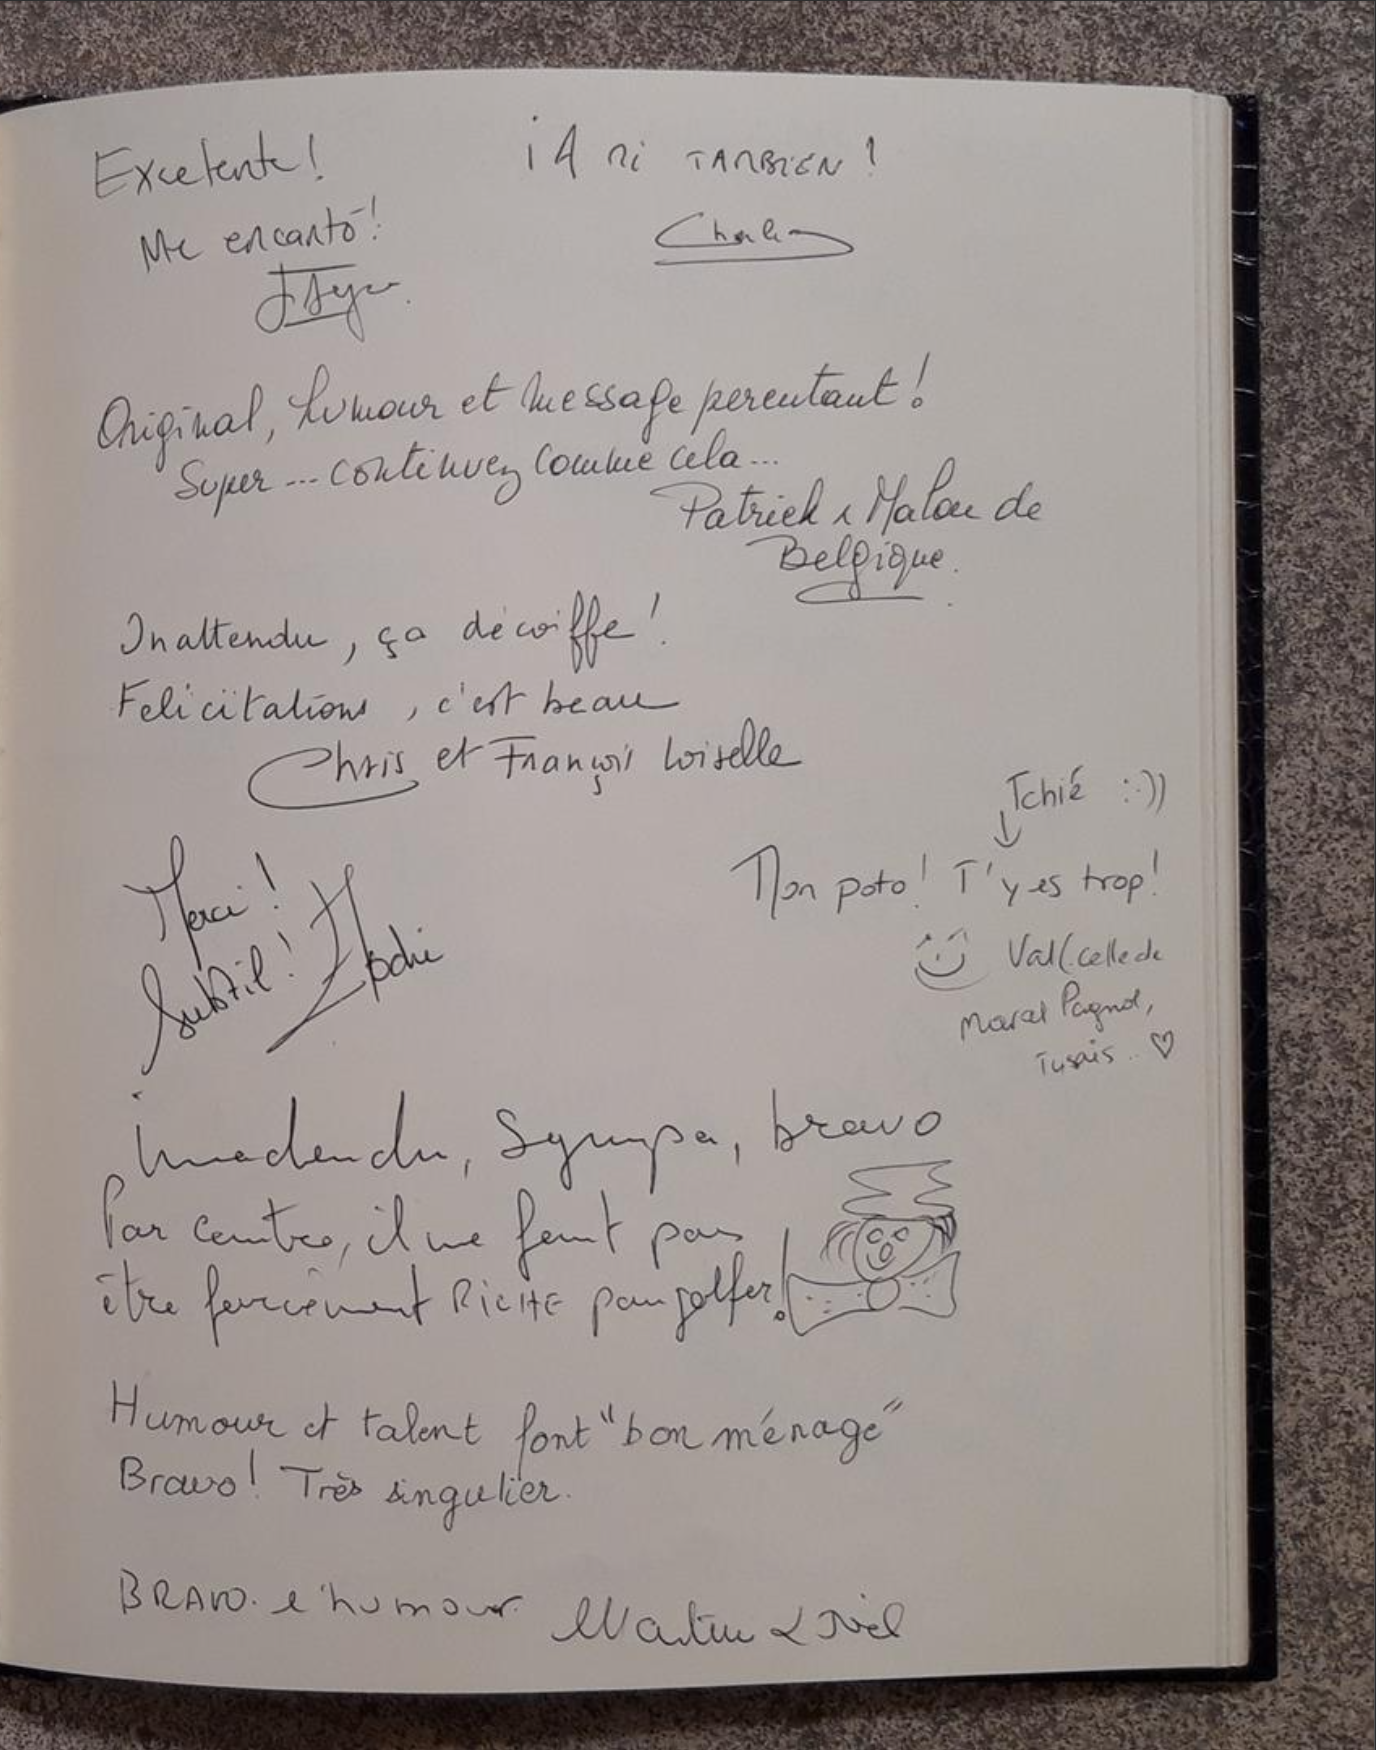 Excelente!
Me encantó!
¡A mi TAMBIEN!
Original, humour et message percutant!
Super... continuez comme cela...
Patrick & Malou de
Belgique.
Inattendu, ça décoiffe!
Felicitations, c'est beau
Chris et François Loiselle
Merci!
Subtil!
Tchié :-))
Mon poto! T'y es trop!
Val (celle de
Marcel Pagnol,
Tusais.. ♡
inattendu, Sympa, bravo
Par contre, il ne faut pas
être forcément RICHE pour golfer!
Humour et talent font "bon ménage"
Bravo! Très singulier.
BRAVO. l'humour
&